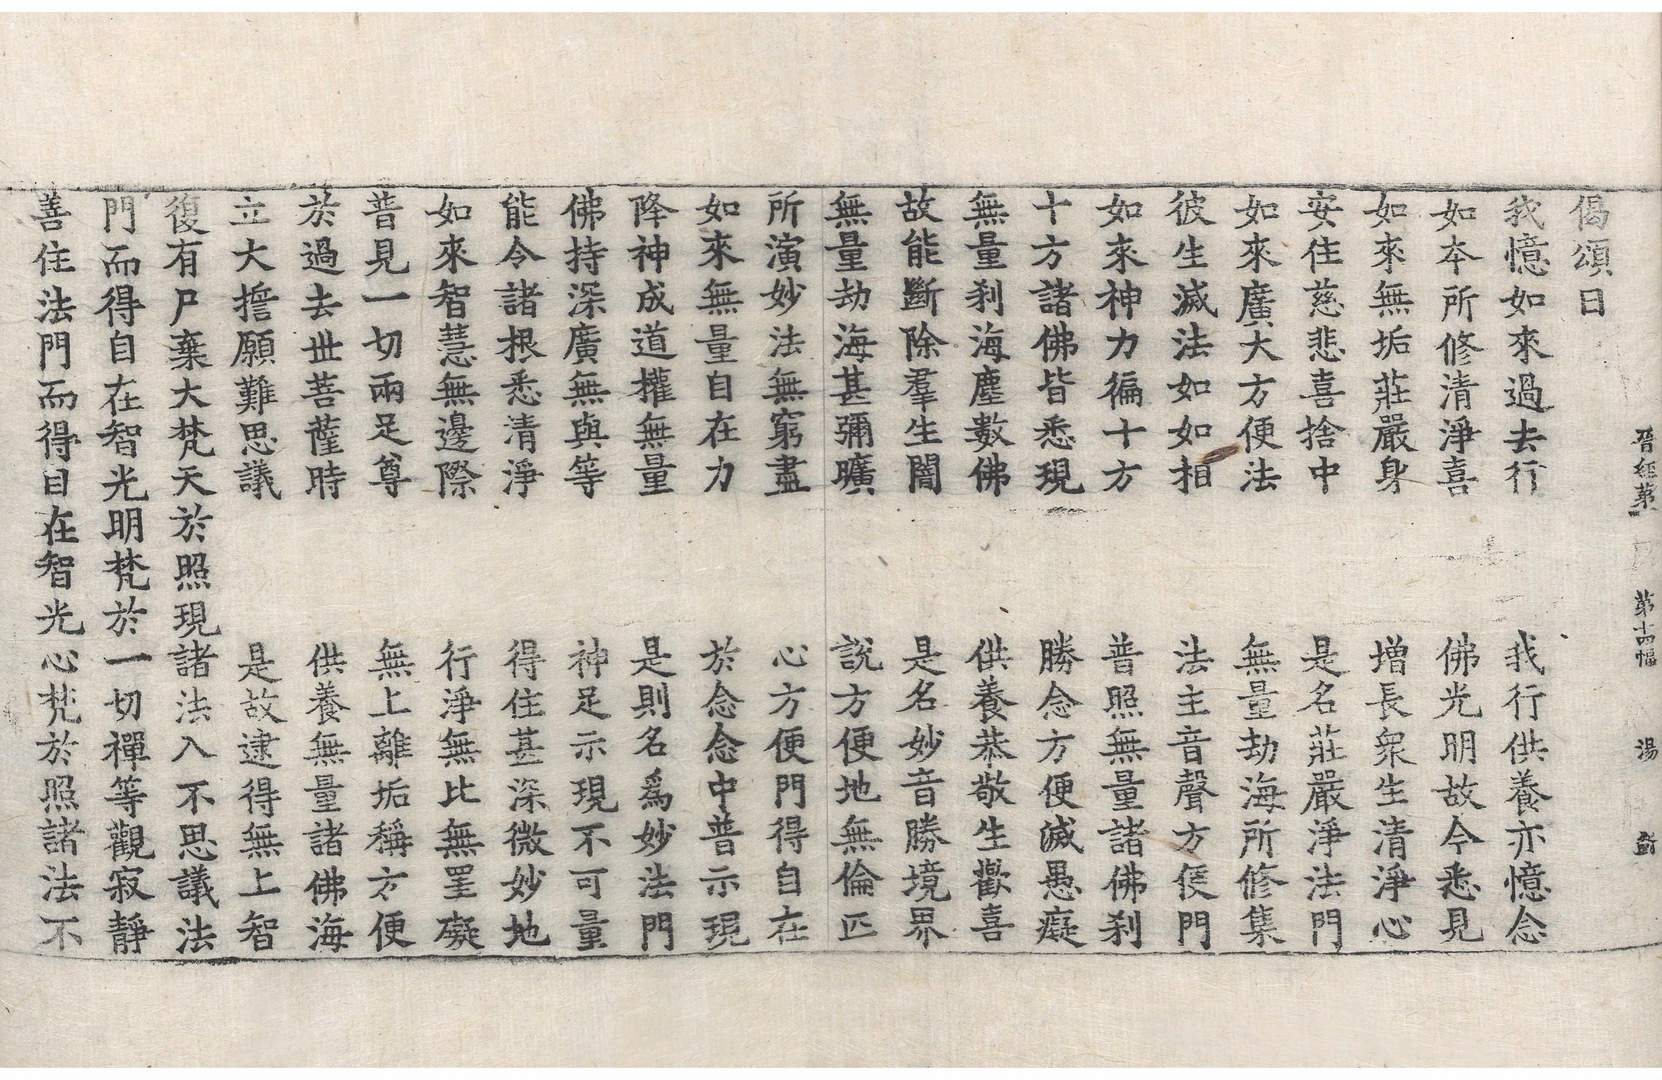 晉經第 第十四幅 湯
偈頌曰
我憶如來過去行 我行供養亦憶念
如本所修清淨喜 佛光明故今悉見
如來無垢莊嚴身 增長衆生清淨心
安住慈悲喜捨中 是名莊嚴淨法門
如來廣大方便法 無量劫海所修集
彼生滅法如如相 法主音聲方便門
如來神力徧十方 普照無量諸佛刹
十方諸佛皆悉現 勝念方便滅愚癡
無量刹海塵數佛 供養恭敬生歡喜
故能斷除羣生闇 是名妙音勝境界
無量劫海甚彌曠 說方便地無倫匹
所演妙法無窮盡 心方便門得自在
如來無量自在力 於念念中普示現
降神成道權無量 是則名爲妙法門
佛持深廣無與等 神足示現不可量
能令諸根悉清淨 得住甚深微妙地
如來智慧無邊際 行淨無比無罣礙
普見一切兩足尊 無上離垢稱方便
於過去世菩薩時 供養無量諸佛海
立大擔願難思議 是故逮得無上智
復有尸棄大梵天於照現諸法入不思議法
門而得自在智光明梵於一切禪等觀寂靜
善住法門而得自在智光心梵於照諸法不